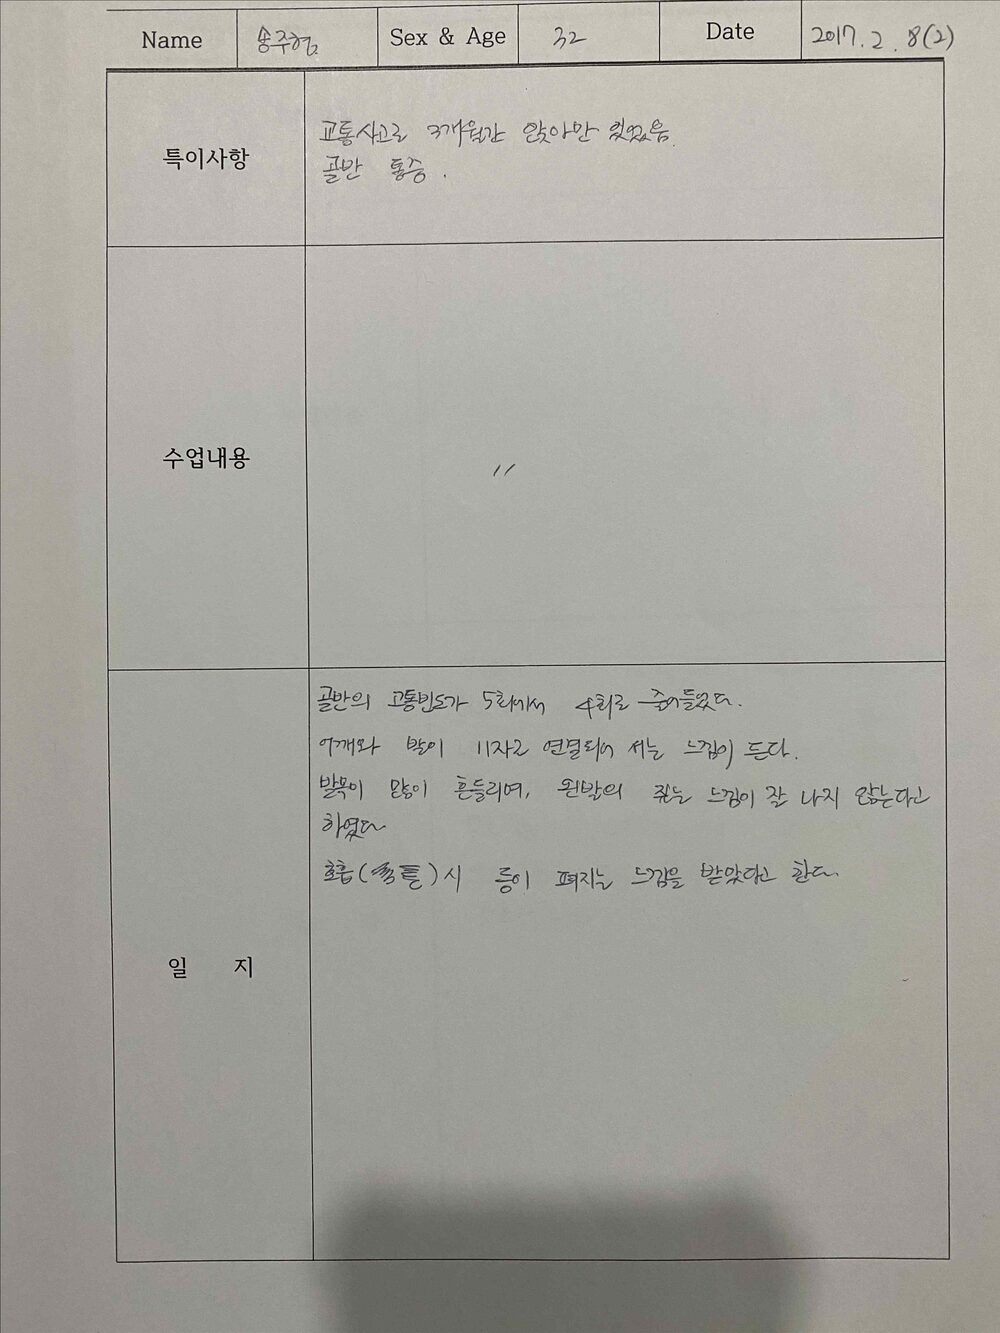 Name 송주험 Sex & Age 32 Date 2017. 2. 8(2)
특이사항
교통사고로 3개월간 앉아만 있었음.
골반 통증.
수업내용
〃
일 지
골반의 고통빈도가 5회에서 4회로 줄어들었다.
어깨와 발이 11자로 연결되어 서는 느낌이 든다.
발목이 많이 흔들리며, 왼발의 쥐는 느낌이 잘 나지 않는다고
하였다
호흡( )시 등이 펴지는 느낌을 받았다고 한다.